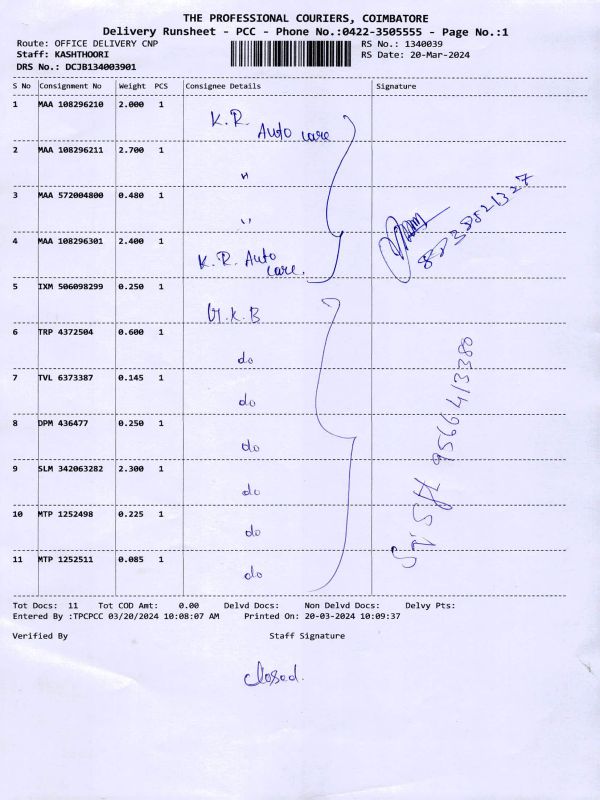 THE PROFESSIONAL COURIERS, COIMBATORE
Delivery Runsheet - PCC - Phone No.:0422-3505555 - Page No.:1
Route: OFFICE DELIVERY CNP RS No.: 1340039
Staff: KASHTHOORI RS Date: 20-Mar-2024
DRS No.: DCJB134003901
S No Consignment No Weight PCS Consignee Details Signature
1 MAA 108296210 2.000 1 K.R. Auto care
2 MAA 108296211 2.700 1 "
3 MAA 572004800 0.480 1 "
8838821327
4 MAA 108296301 2.400 1 K.R. Auto care.
5 IXM 506098299 0.250 1 G.K.B
6 TRP 4372504 0.600 1 do
7 TVL 6373387 0.145 1 do
9566413380
8 DPM 436477 0.250 1 do
9 SLM 342063282 2.300 1 do
10 MTP 1252498 0.225 1 do
11 MTP 1252511 0.085 1 do
Tot Docs: 11 Tot COD Amt: 0.00 Delvd Docs: Non Delvd Docs: Delvy Pts:
Entered By :TPCPCC 03/20/2024 10:08:07 AM Printed On: 20-03-2024 10:09:37
Verified By Staff Signature
closed.